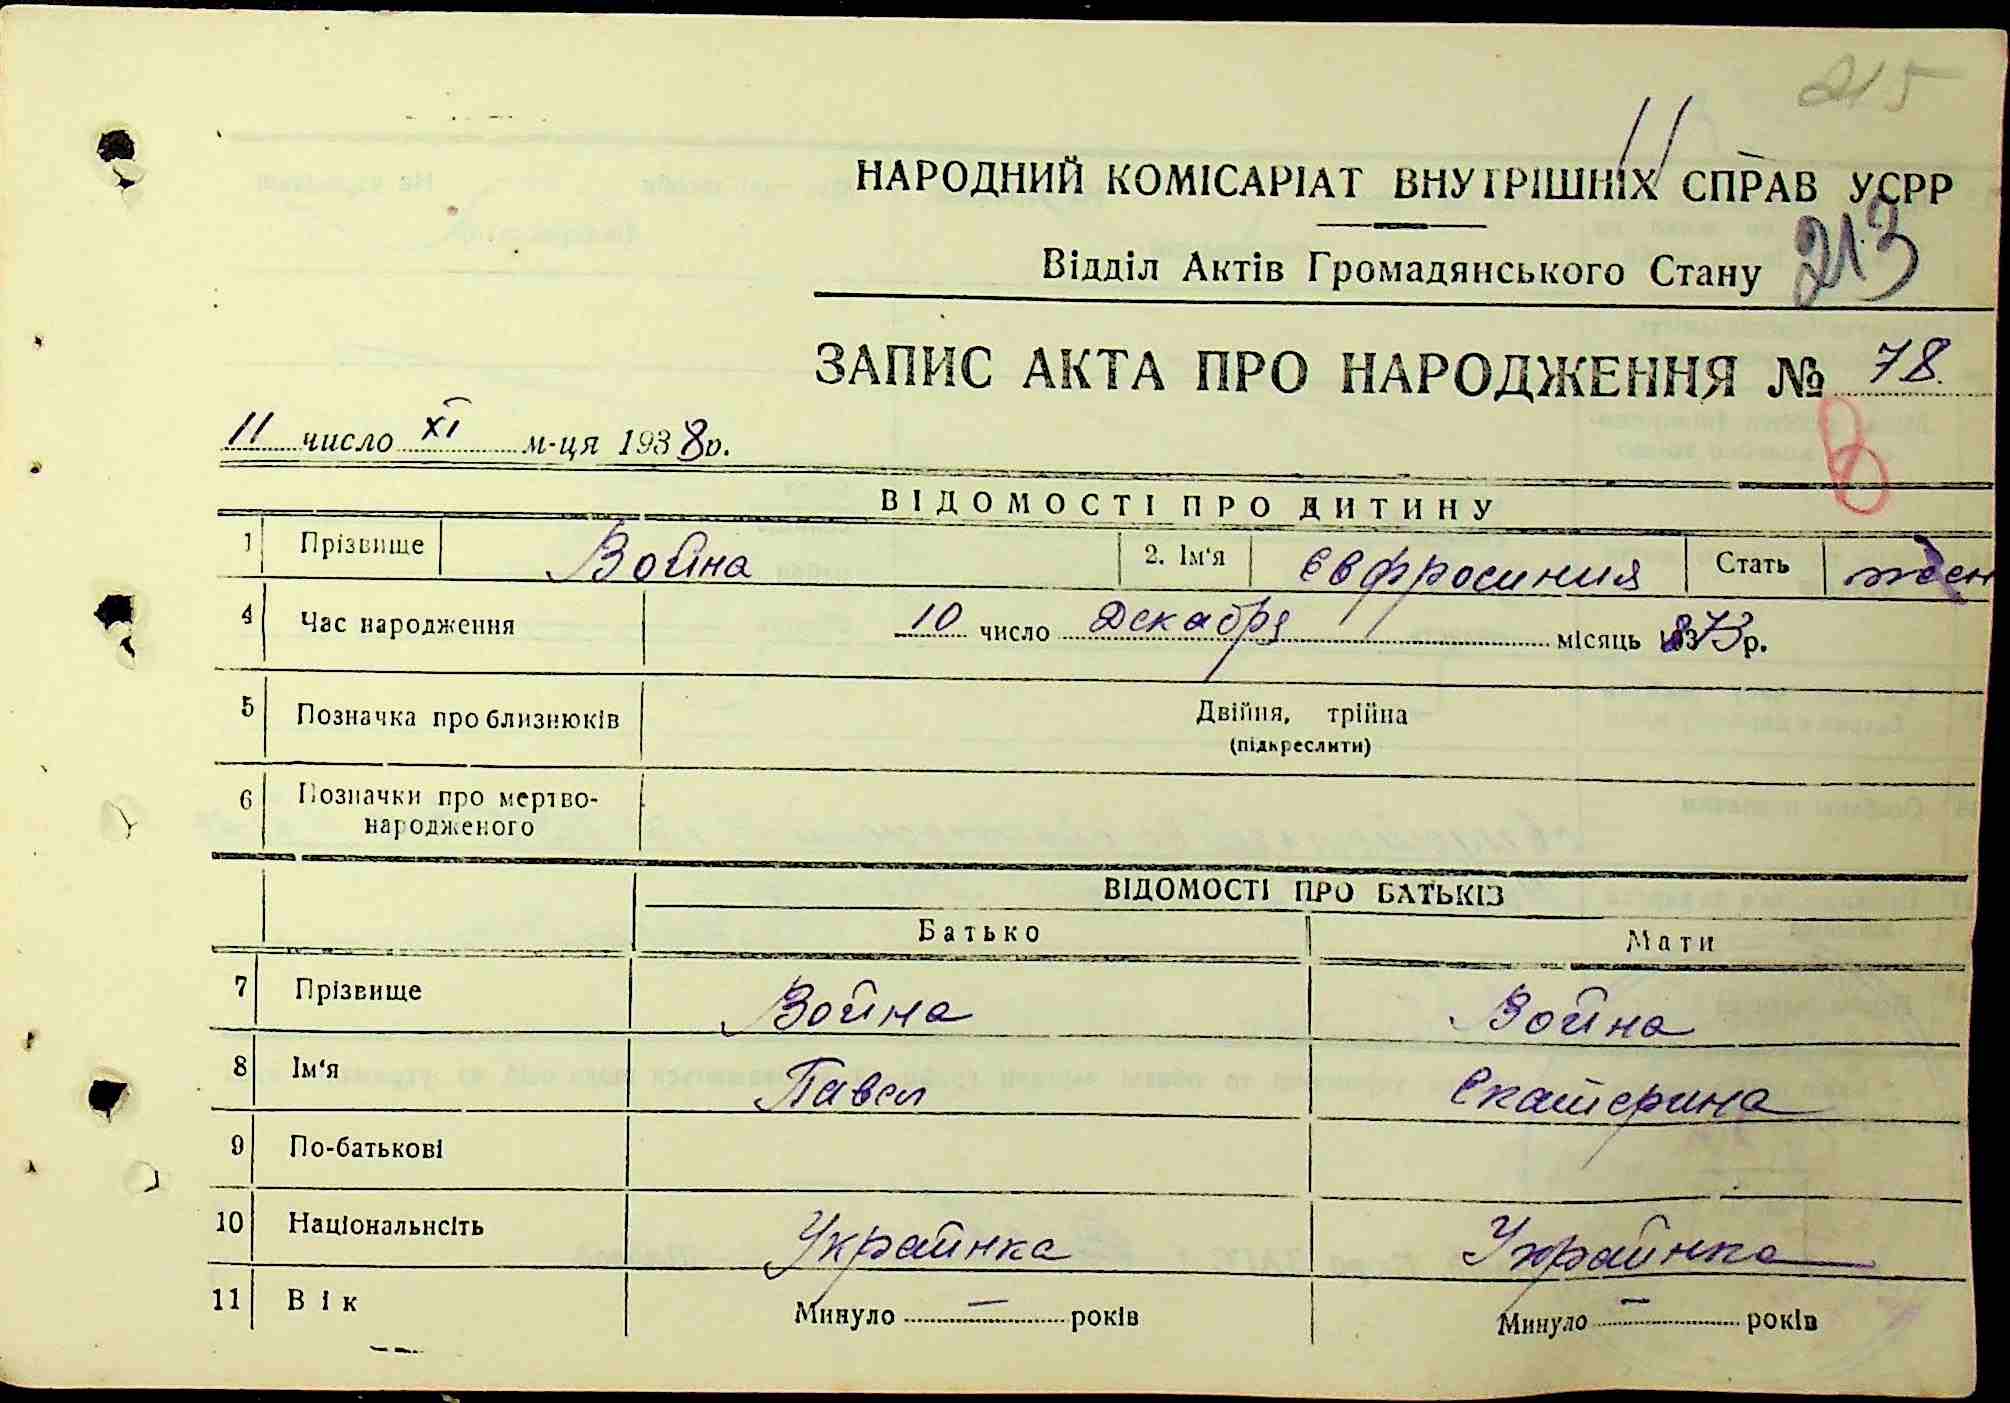 215
11
НАРОДНИЙ КОМІСАРІАТ ВНУТРІШНІХ СПРАВ УСРР
Відділ Актів Громадянського Стану 213
ЗАПИС АКТА ПРО НАРОДЖЕННЯ № 78.
11 число XI м-ця 1938 р.
ВІДОМОСТІ ПРО ДИТИНУ
1 Прізвище Война 2. Ім'я Євфросиния Стать жен
4 Час народження 10 число Декабря місяць 1873 р.
5 Позначка про близнюків Двійня, трійна
(підкреслити)
6 Позначки про мертво-
народженого
ВІДОМОСТІ ПРО БАТЬКІВ
Батько Мати
7 Прізвище Война Война
8 Ім'я Павел Екатерина
9 По-батькові
10 Національнсіть Украинка Украинка
11 Вік Минуло — років Минуло — років